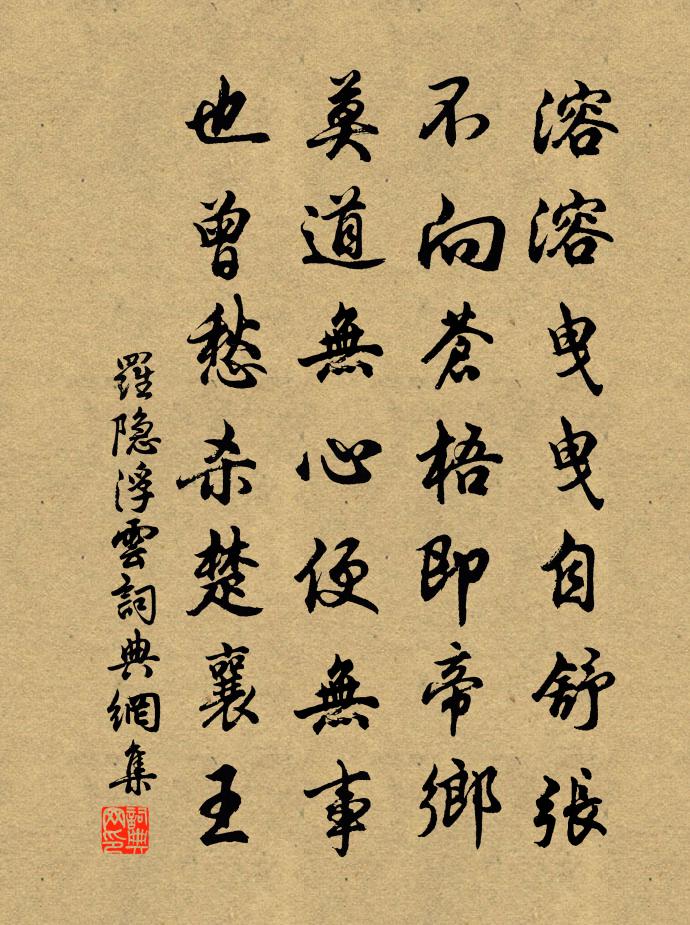 溶溶曳曳自舒張
不向蒼梧即帝鄉
莫道無心便無事
也曾愁杀楚襄王
羅隐浮雲詞典網集
詞典网印